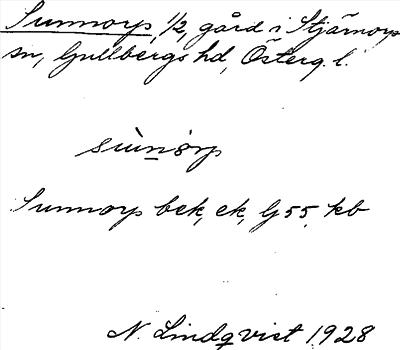 Sunnorp, 1/2, gård i Stjärnorps
sn, Gullbergs hd, Österg. l.
sùnòrp
Sunnorp bek, ek, G55, kb
N. Lindqvist 1928